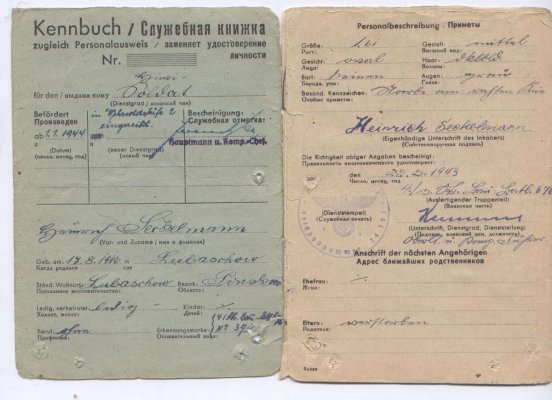 Kennbuch / Служебная книжка
zugleich Personalausweis / заменяет удостоверение
личности
Nr.
für den / выдана кому Soldat
(Dienstgrad / воинский чин)
Befördert
Произведен
Bescheinigung:
Служебная отметка:
ab 1.1.1944 in
(Datum)
(число, месяц, год)
(neuer Dienstgrad)
(новый чин)
Hauptmann u. Komp.-Chef.
Heinrich Seckelmann
(Vor- und Zuname / имя и фамилия)
Geb. am 17.8.1916 in Lubaschow
Когда родился где
Ständ. Wohnort: Lubaschow Bezirk: Pinsk
Постоянное местожительство: Область:
Ledig, verheiratet: ledig Kinder:
Холост, женат: Детей:
Beruf: ohne Erkennungsmarke
Профессия: Опознавательный знак:
Personalbeschreibung / Приметы
Größe: 161 Gestalt: mittel
Рост: Внешний вид:
Gesicht: oval Haar: dklbld
Лицо: Волосы:
Bart: Augen: grau
Борода, усы: Глаза:
Besond. Kennzeichen: Narbe am rechten
Особые приметы:
Heinrich Seckelmann
(Eigenhändige Unterschrift des Inhabers)
(Собственноручная подпись)
Die Richtigkeit obiger Angaben bescheinigt:
Правильность вышеозначенного удостоверяет:
den 1943
Число, месяц, год
(Ausfertigender Truppenteil)
(Воинская часть)
(Dienststempel)
(Служебная печать)
(Unterschrift, Dienstgrad, Dienststellung)
(Подпись, воинский чин, должность)
Anschrift der nächsten Angehörigen
Адрес ближайших родственников
Ehefrau:
Жена:
Eltern: verstorben
Родители:
Russe